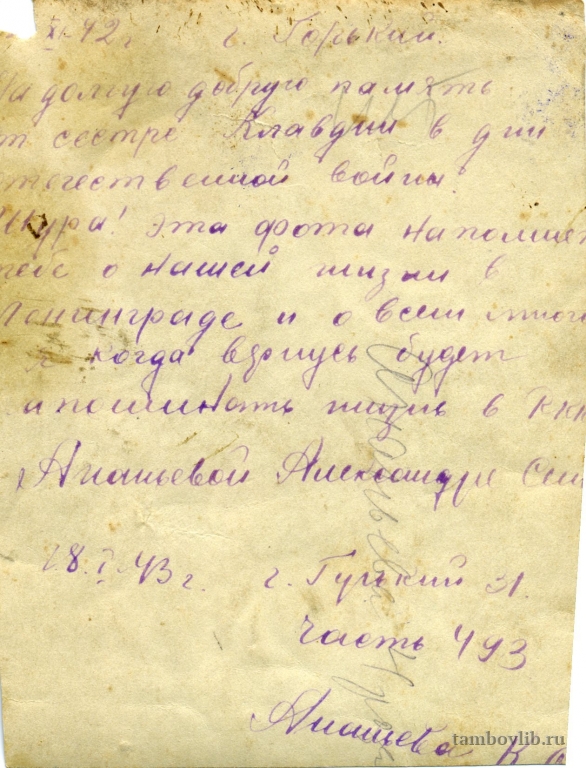 XI 42 г г. Горький.
На долгую добрую память
от сестре Клавдии в дни
отечественной войны.
Шура! Эта фота напомнит
тебе о нашей жизни в
Ленинграде и о всем
я когда вернусь будет
апоминать жизнь в РКК
Ананьевой Александре Сем
28.I.43 г. г. Гурький 31.
часть 493
Ананьева К
tamboylib.ru